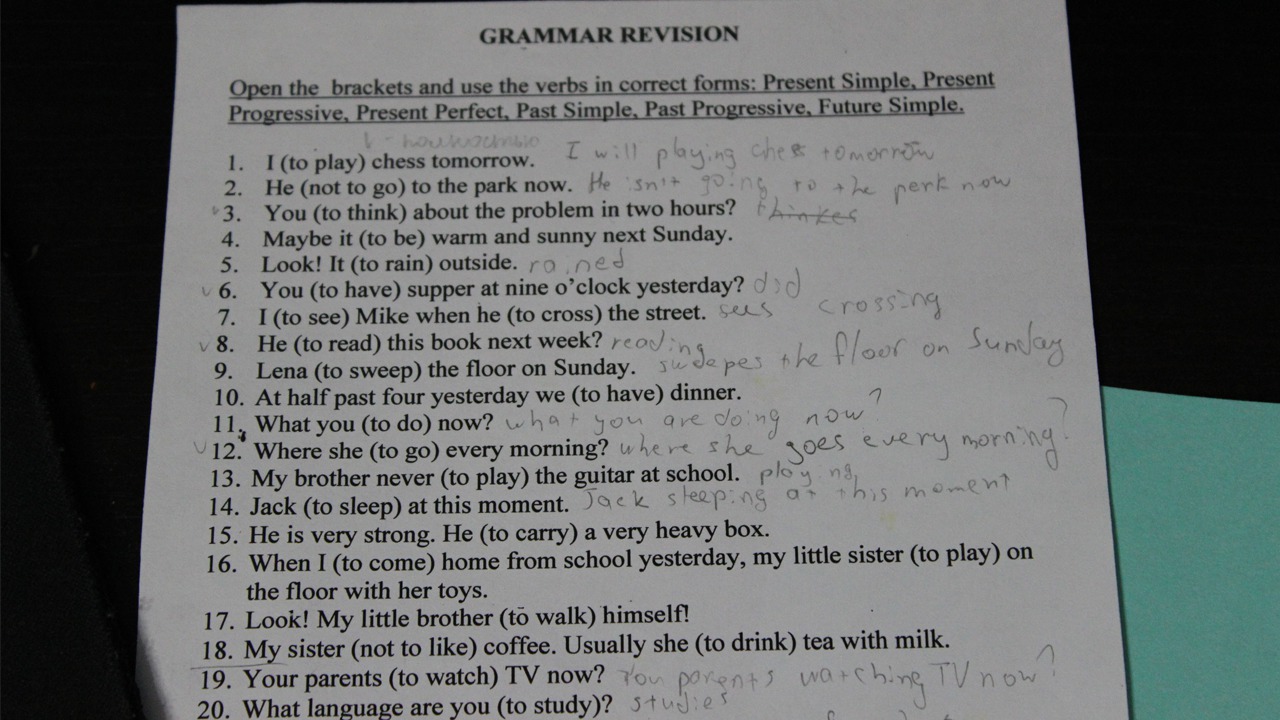 GRAMMAR REVISION
Open the brackets and use the verbs in correct forms: Present Simple, Present
Progressive, Present Perfect, Past Simple, Past Progressive, Future Simple.
1. I (to play) chess tomorrow. I will playing chess tomorrow
2. He (not to go) to the park now. He isn't going to the perk now
3. You (to think) about the problem in two hours? thinkes
4. Maybe it (to be) warm and sunny next Sunday.
5. Look! It (to rain) outside. rained
6. You (to have) supper at nine o'clock yesterday? did
7. I (to see) Mike when he (to cross) the street. sees crossing
8. He (to read) this book next week? reading
9. Lena (to sweep) the floor on Sunday. the floor on Sunday
10. At half past four yesterday we (to have) dinner.
11. What you (to do) now? what you are doing now?
12. Where she (to go) every morning? where she goes every morning?
13. My brother never (to play) the guitar at school. playing
14. Jack (to sleep) at this moment. Jack sleeping at this moment
15. He is very strong. He (to carry) a very heavy box.
16. When I (to come) home from school yesterday, my little sister (to play) on
the floor with her toys.
17. Look! My little brother (to walk) himself!
18. My sister (not to like) coffee. Usually she (to drink) tea with milk.
19. Your parents (to watch) TV now? You parents watching TV now?
20. What language are you (to study)? studies